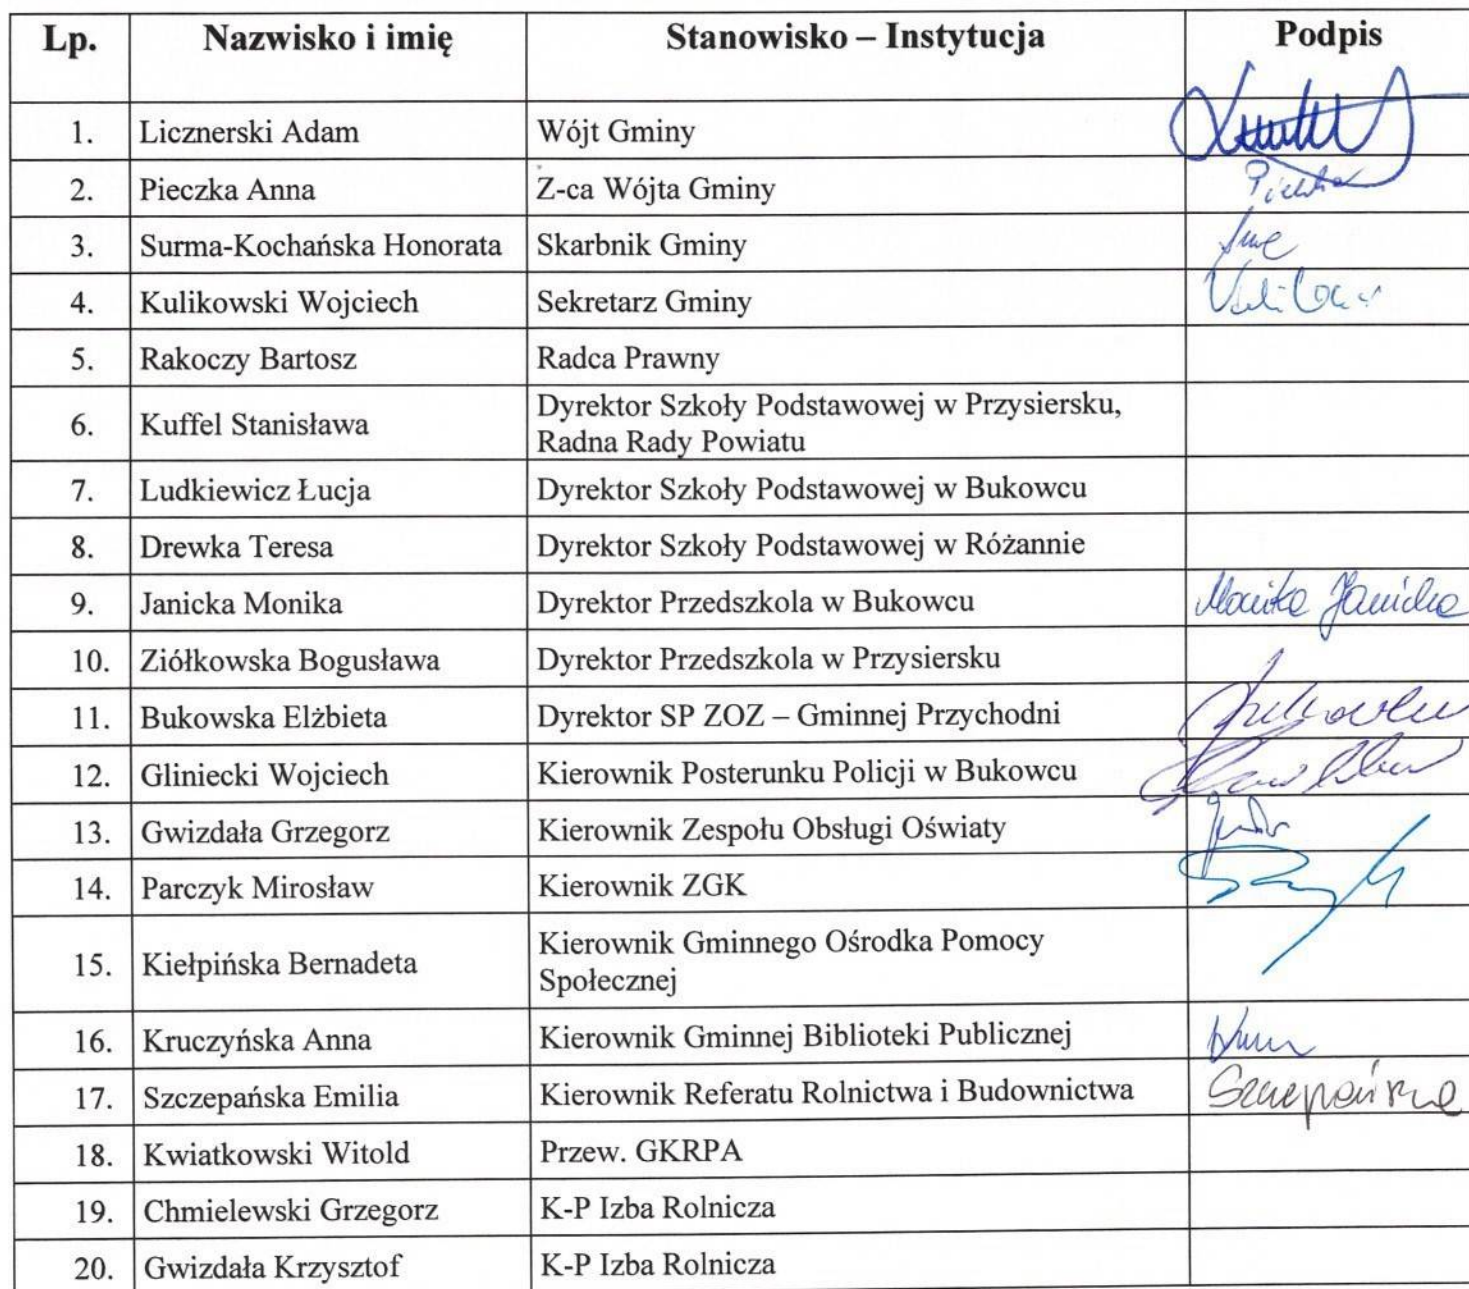 Lp. Nazwisko i imię Stanowisko – Instytucja Podpis
1. Licznerski Adam Wójt Gminy
2. Pieczka Anna Z-ca Wójta Gminy
3. Surma-Kochańska Honorata Skarbnik Gminy
4. Kulikowski Wojciech Sekretarz Gminy
5. Rakoczy Bartosz Radca Prawny
6. Kuffel Stanisława Dyrektor Szkoły Podstawowej w Przysiersku,
Radna Rady Powiatu
7. Ludkiewicz Łucja Dyrektor Szkoły Podstawowej w Bukowcu
8. Drewka Teresa Dyrektor Szkoły Podstawowej w Różannie
9. Janicka Monika Dyrektor Przedszkola w Bukowcu Monika Janicka
10. Ziółkowska Bogusława Dyrektor Przedszkola w Przysiersku
11. Bukowska Elżbieta Dyrektor SP ZOZ – Gminnej Przychodni
12. Gliniecki Wojciech Kierownik Posterunku Policji w Bukowcu
13. Gwizdała Grzegorz Kierownik Zespołu Obsługi Oświaty
14. Parczyk Mirosław Kierownik ZGK
15. Kiełpińska Bernadeta Kierownik Gminnego Ośrodka Pomocy
Społecznej
16. Kruczyńska Anna Kierownik Gminnej Biblioteki Publicznej
17. Szczepańska Emilia Kierownik Referatu Rolnictwa i Budownictwa Szczepańska
18. Kwiatkowski Witold Przew. GKRPA
19. Chmielewski Grzegorz K-P Izba Rolnicza
20. Gwizdała Krzysztof K-P Izba Rolnicza